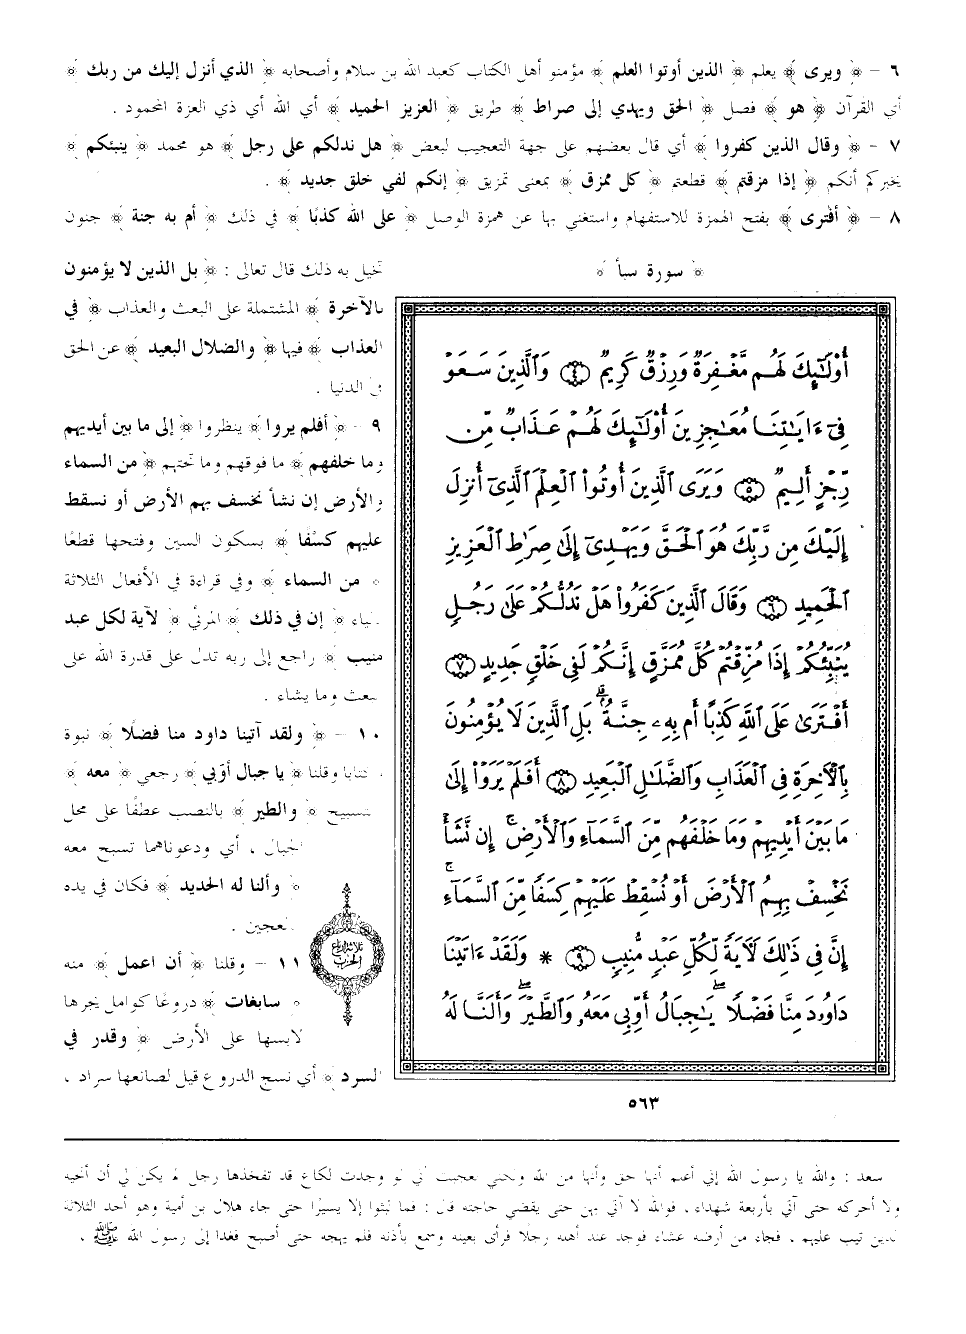 ٦ - ﴿ ويرى ﴾ يعلم ﴿ الذين أوتوا العلم ﴾ مؤمنو أهل الكتاب كعبد الله بن سلام وأصحابه ﴿ الذي أنزل إليك من ربك ﴾
أي القرآن ﴿ هو ﴾ فصل ﴿ الحق ويهدي إلى صراط ﴾ طريق ﴿ العزيز الحميد ﴾ أي الله أي ذي العزة المحمود .
٧ - ﴿ وقال الذين كفروا ﴾ أي قال بعضهم على جهة التعجيب لبعض ﴿ هل ندلكم على رجل ﴾ هو محمد ﴿ ينبئكم ﴾
يخبركم أنكم ﴿ إذا مزقتم ﴾ قطعتم ﴿ كل ممزق ﴾ بمعنى تمزيق ﴿ إنكم لفي خلق جديد ﴾ .
٨ - ﴿ أفترى ﴾ بفتح الهمزة للاستفهام واستغني بها عن همزة الوصل ﴿ على الله كذبًا ﴾ في ذلك ﴿ أم به جنة ﴾ جنون
﴿ سورة سبأ ﴾
أُوْلَٰٓئِكَ لَهُم مَّغْفِرَةٌ وَرِزْقٌ كَرِيمٌ ٤ وَالَّذِينَ سَعَوْ
فِىٓ ءَايَٰتِنَا مُعَٰجِزِينَ أُوْلَٰٓئِكَ لَهُمْ عَذَابٌ مِّن
رِّجْزٍ أَلِيمٌ ٥ وَيَرَى الَّذِينَ أُوتُوا۟ الْعِلْمَ الَّذِىٓ أُنزِلَ
إِلَيْكَ مِن رَّبِّكَ هُوَ الْحَقَّ وَيَهْدِىٓ إِلَىٰ صِرَٰطِ الْعَزِيزِ
الْحَمِيدِ ٦ وَقَالَ الَّذِينَ كَفَرُوا۟ هَلْ نَدُلُّكُمْ عَلَىٰ رَجُلٍ
يُنَبِّئُكُمْ إِذَا مُزِّقْتُمْ كُلَّ مُمَزَّقٍ إِنَّكُمْ لَفِى خَلْقٍ جَدِيدٍ ٧
أَفْتَرَىٰ عَلَى اللَّهِ كَذِبًا أَم بِهِۦ جِنَّةٌۢ بَلِ الَّذِينَ لَا يُؤْمِنُونَ
بِالْءَاخِرَةِ فِى الْعَذَابِ وَالضَّلَٰلِ الْبَعِيدِ ٨ أَفَلَمْ يَرَوْا۟ إِلَىٰ
مَا بَيْنَ أَيْدِيهِمْ وَمَا خَلْفَهُم مِّنَ السَّمَآءِ وَالْأَرْضِ ۚ إِن نَّشَأْ
نَخْسِفْ بِهِمُ الْأَرْضَ أَوْ نُسْقِطْ عَلَيْهِمْ كِسَفًا مِّنَ السَّمَآءِ ۚ
إِنَّ فِى ذَٰلِكَ لَءَايَةً لِّكُلِّ عَبْدٍ مُّنِيبٍ ٩ * وَلَقَدْ ءَاتَيْنَا
دَاوُۥدَ مِنَّا فَضْلًا ۖ يَٰجِبَالُ أَوِّبِى مَعَهُۥ وَالطَّيْرَ ۖ وَأَلَنَّا لَهُ
٥٦٣
تخيل به ذلك قال تعالى : ﴿ بل الذين لا يؤمنون
بالآخرة ﴾ المشتملة على البعث والعذاب ﴿ في
العذاب ﴾ فيها ﴿ والضلال البعيد ﴾ عن الحق
في الدنيا .
٩ - ﴿ أفلم يروا ﴾ ينظروا ﴿ إلى ما بين أيديهم
وما خلفهم ﴾ ما فوقهم وما تحتهم ﴿ من السماء
والأرض إن نشأ نخسف بهم الأرض أو نسقط
عليهم كسْفًا ﴾ بسكون السين وفتحها قطعًا
﴿ من السماء ﴾ وفي قراءة في الأفعال الثلاثة
بالياء ﴿ إن في ذلك ﴾ المرئي ﴿ لآية لكل عبد
منيب ﴾ راجع إلى ربه تدل على قدرة الله على
البعث وما يشاء .
١٠ - ﴿ ولقد آتينا داود منا فضلًا ﴾ نبوة
وكتابا وقلنا ﴿ يا جبال أوّبي ﴾ رجعي ﴿ معه ﴾
بالتسبيح ﴿ والطير ﴾ بالنصب عطفًا على محل
الجبال ، أي ودعوناهما تسبح معه
﴿ وألنا له الحديد ﴾ فكان في يده
كالعجين .
١١ - وقلنا ﴿ أن اعمل ﴾ منه
﴿ سابغات ﴾ دروعًا كوامل يجرها
لابسها على الأرض ﴿ وقدر في
السرد ﴾ أي نسج الدروع قيل لصانعها سراد ،
ثلاثة أرباع
الحزب
سعد : والله يا رسول الله إني أعلم أنها حق وأنها من الله ولكني تعجبت أني لو وجدت لكاع قد تفخذها رجل لم يكن لي أن أنحيه
ولا أحركه حتى آتي بأربعة شهداء ، فوالله لا آتي بهن حتى يقضي حاجته قال : فما لبثوا إلا يسيرًا حتى جاء هلال بن أمية وهو أحد الثلاثة
الذين تيب عليهم ، فجاء من أرضه عشاء فوجد عند أهله رجلًا فرأى بعينه وسمع بأذنه فلم يهجه حتى أصبح فغدا إلى رسول الله ﷺ ،